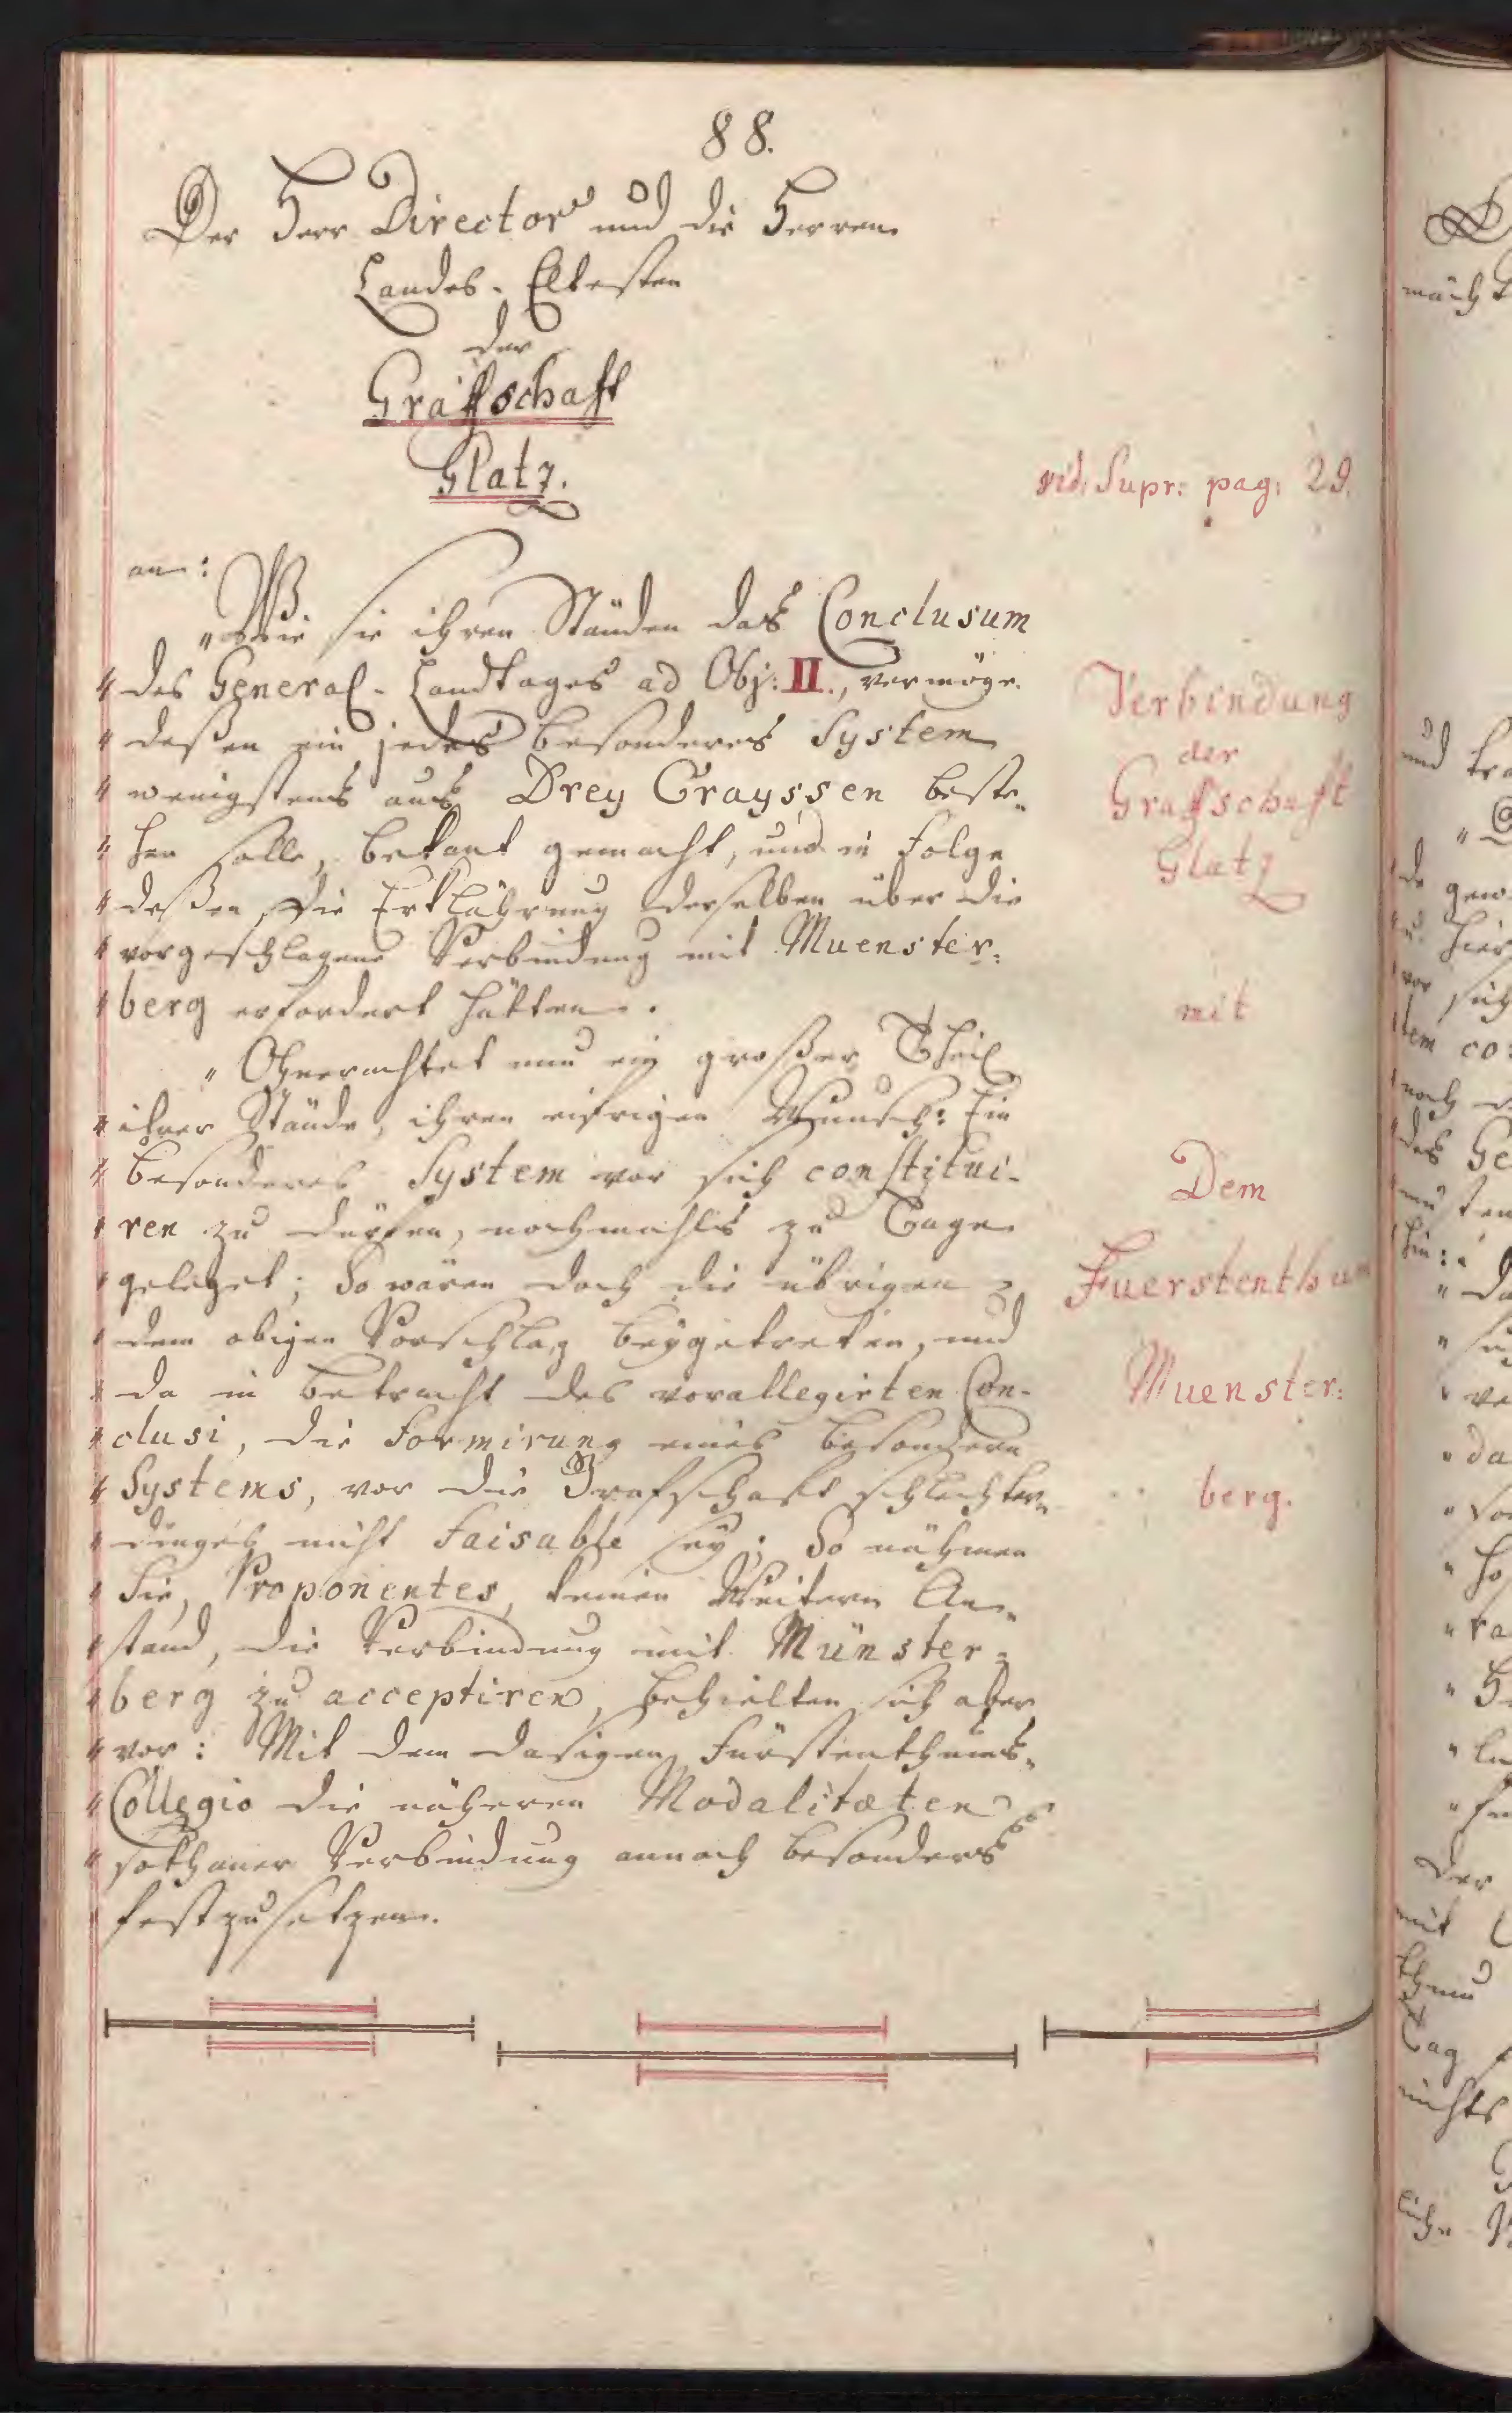 88.
Der Herr Director und die Herren
Landes-Eltesten
der
Graffschafft
Glatz.
vid: Supr: pag: 29.
an:
"Wie sie ihren Ständen das Conclusum
" des General-Landtages ad Obj: II., vermöge
" deßen ein jedes besonderes System
" wenigstens aus Drey Crayssen beste-
" hen solle, bekant gemacht, und in Folge
" deßen die Erklährung derselben über die
" vorgeschlagene Verbindung mit Muenster-
" berg erfordert hätten.
" Ohnerachtet nun ein großer Theil
" ihrer Stände, ihren eifrigen Wunsch: Ein
" besonderes System vor sich constitui-
" ren zu dürfen, nochmahls zu Tage
" geleget; So wären doch die übrigen
" dem obigen Vorschlag beygetreten, und
" da in betracht des vorallegirten Con-
" clusi, die Formirung eines besondern
" Systems, vor die Grafschaft schlechter-
" dinges nicht faisable sey; So nähmen
" Sie, Proponentes, keinen Weitern An-
" stand, die Verbindung mit Münster-
" berg zu acceptiren, behielten sich aber
" vor: Mit dem dasigen Fürstenthums-
" Collegio die näheren Modalitæten
" sothaner Verbindung annoch besonders
" festzusetzen.
Verbindung
der
Graffschafft
Glatz
mit
Dem
Fuerstenthum
Muenster:
berg.